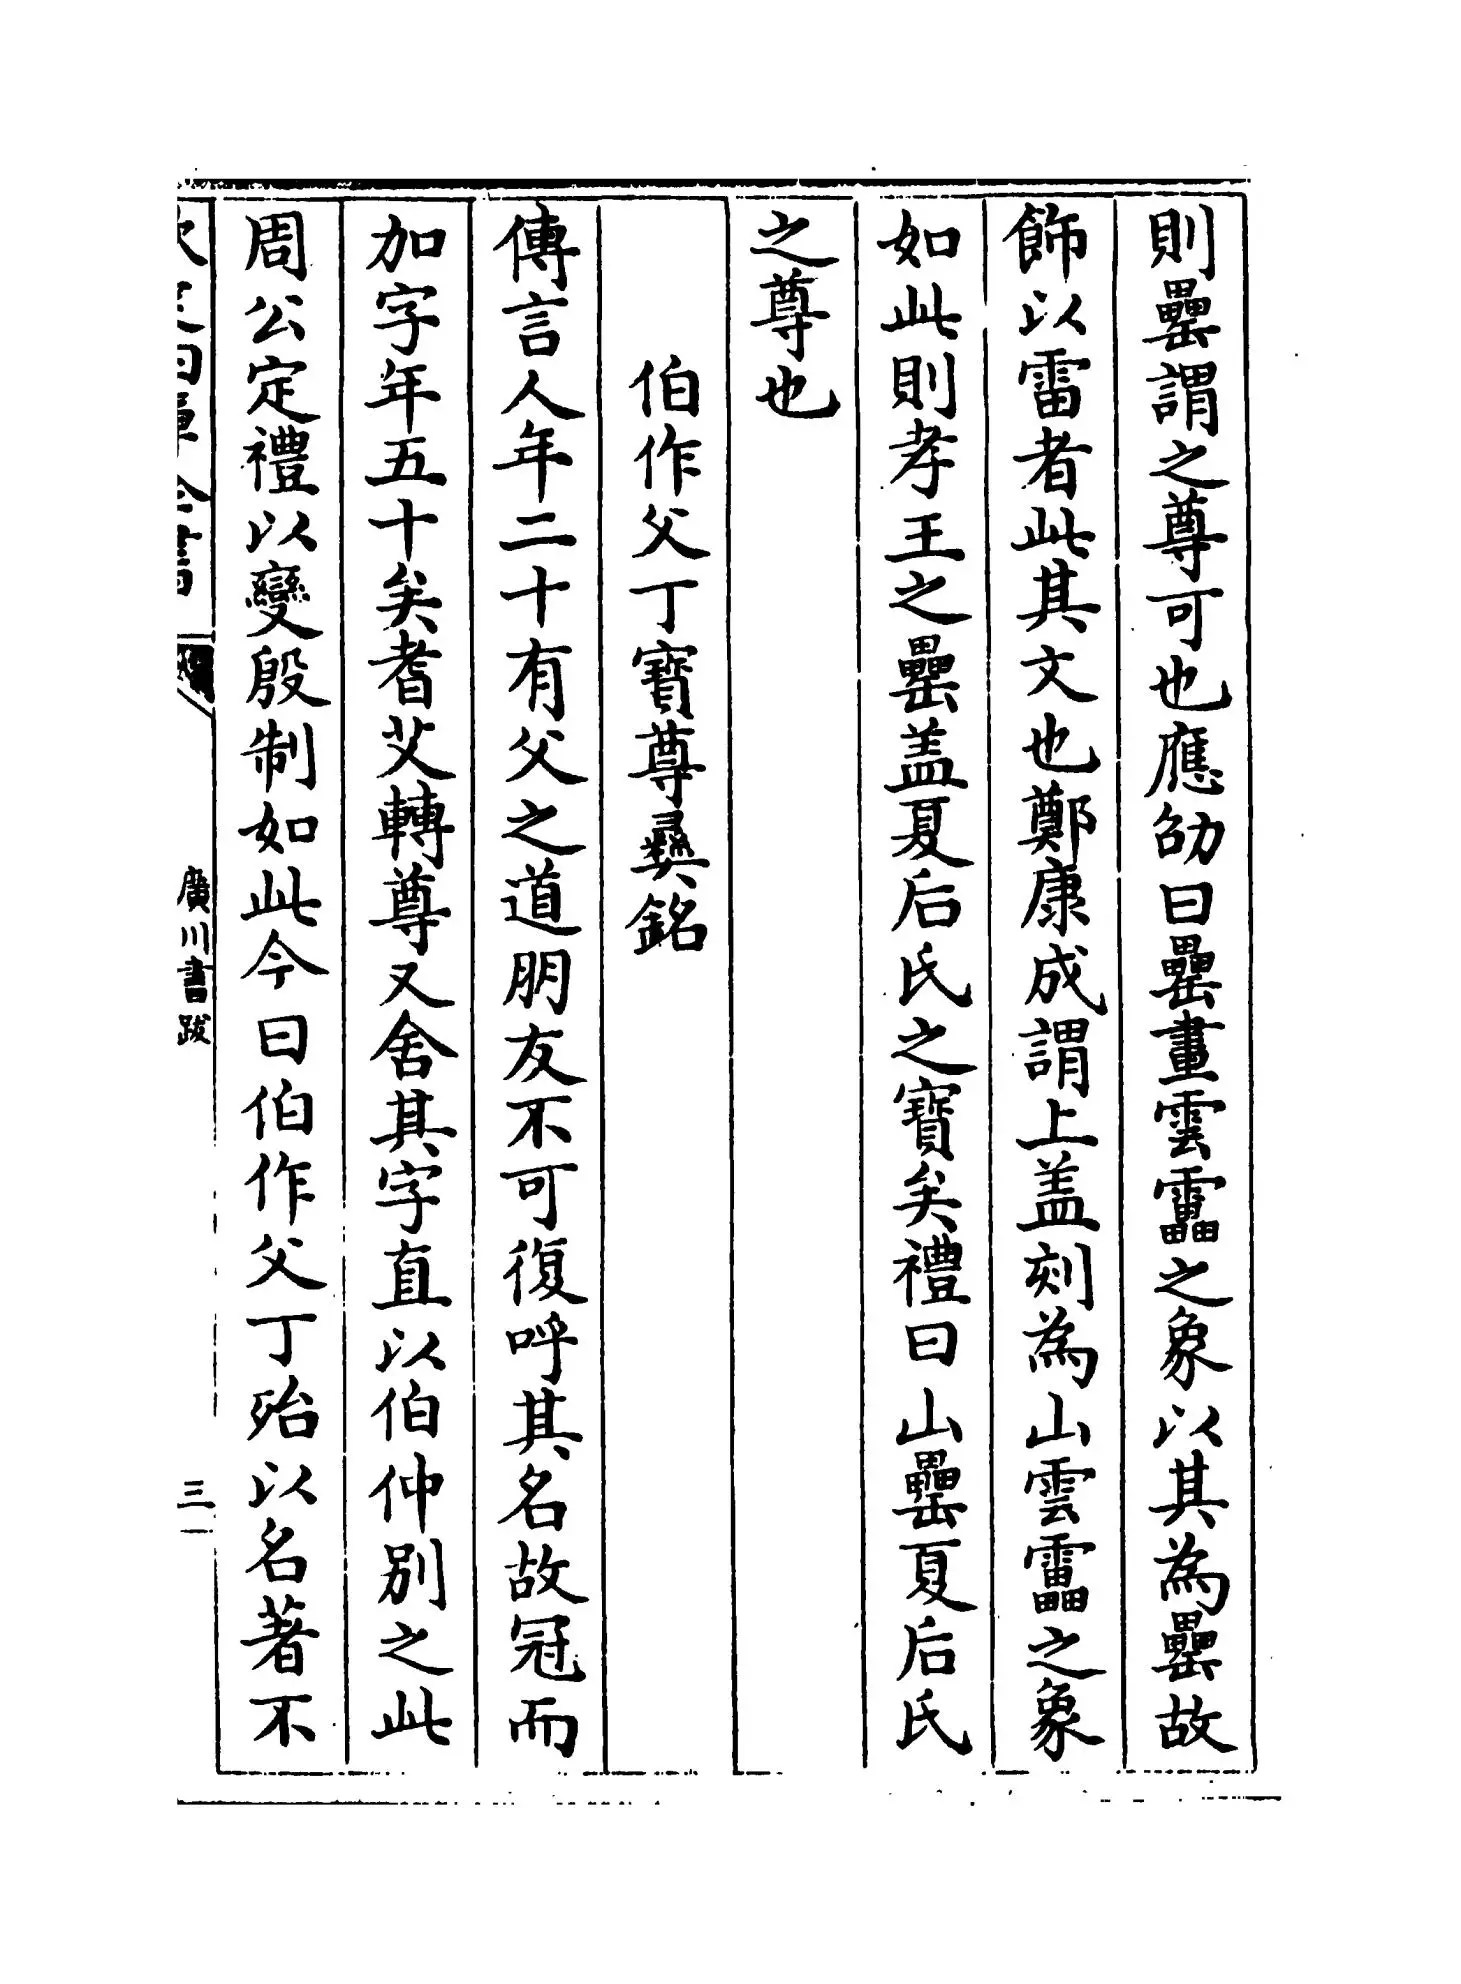 則罍謂之尊可也應劭曰罍畫雲靁之象以其為罍故
飾以雷者此其文也鄭康成謂上盖刻為山雲靁之象
如此則孝王之罍盖夏后氏之寳矣禮曰山罍夏后氏
之尊也
伯作父丁寳尊彛銘
傳言人年二十有父之道朋友不可復呼其名故冠而
加字年五十矣耆艾轉尊又舍其字直以伯仲别之此
周公定禮以變殷制如此今曰伯作父丁殆以名著不
欽定四庫全書
廣川書跋
三